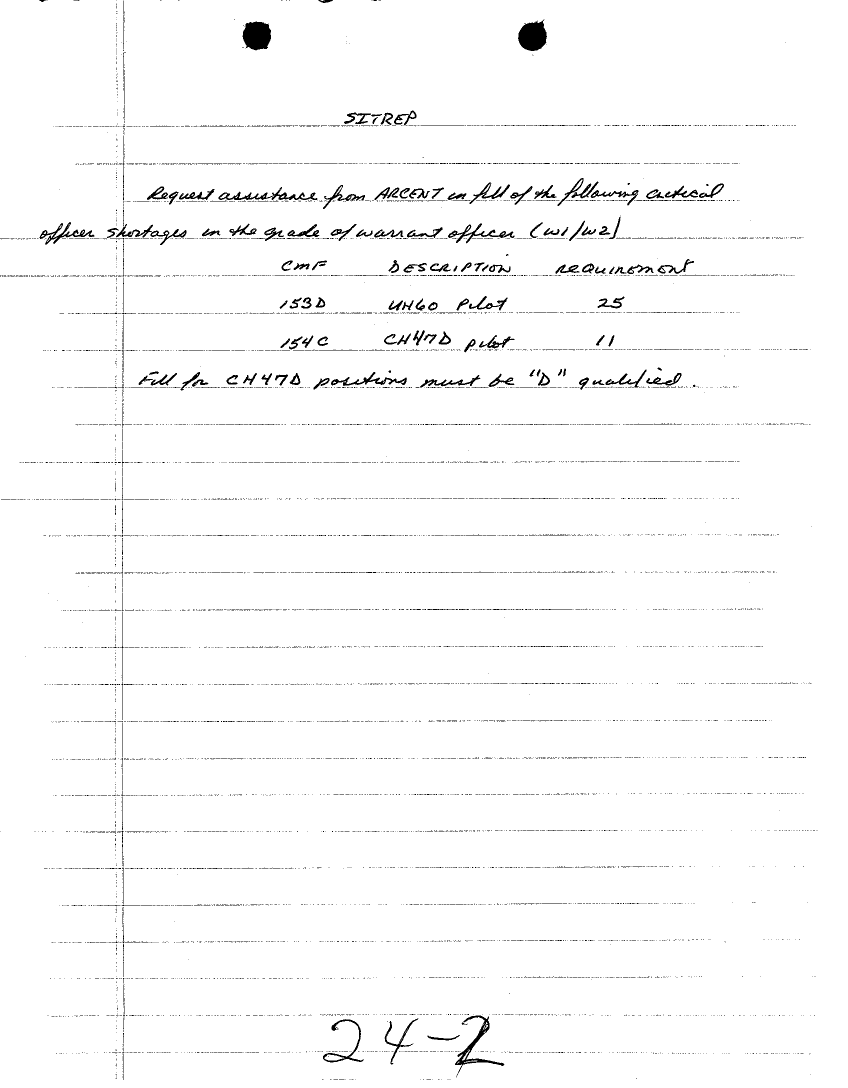 SITREP
Request assistance from ARCENT in fill of the following critical
officer shortages in the grade of warrant officer (W1/W2)
CMF DESCRIPTION REQUIREMENT
153D UH60 Pilot 25
154C CH47D pilot 11
Fill for CH47D positions must be "D" qualified.
24-2